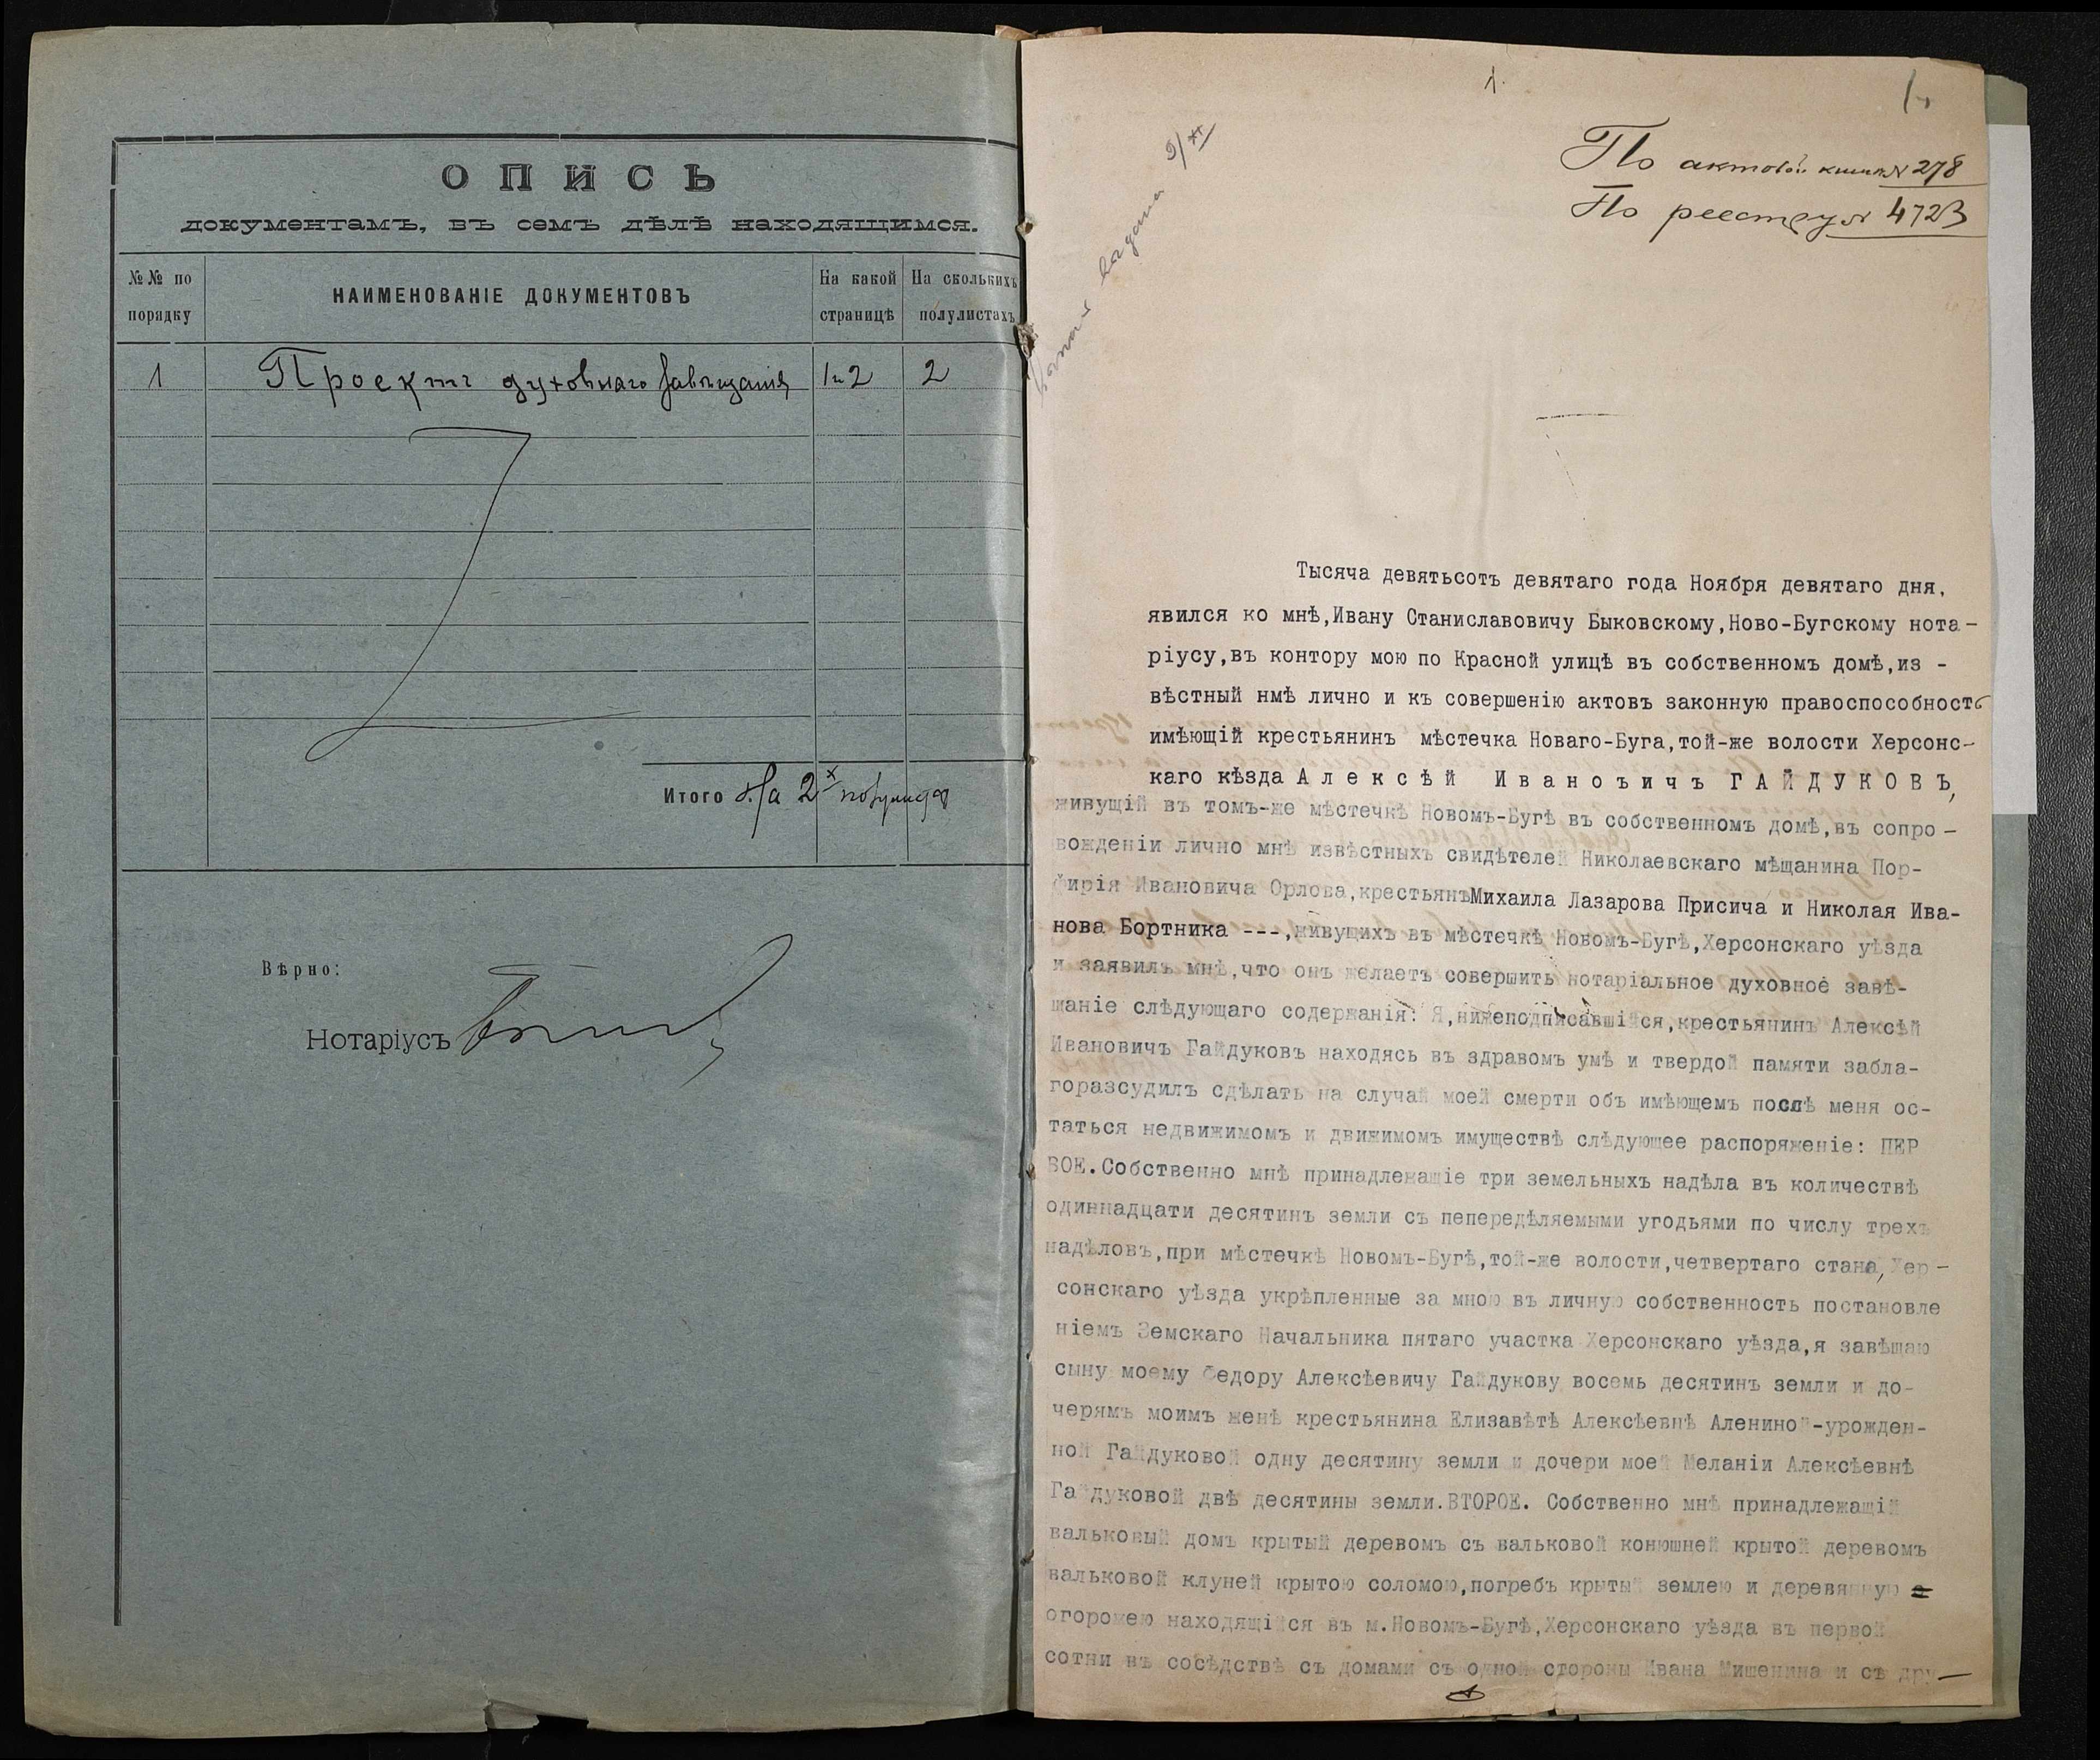 ОПИСЬ
документамъ, въ семъ дѣлѣ находящимся.
№№ по порядку
НАИМЕНОВАНІЕ ДОКУМЕНТОВЪ
На какой страницѣ
На сколькихъ полулистахъ
1 Проектъ духовнаго завѣщанія 1и2 2
Итого на 2х полулистах
Вѣрно:
Нотаріусъ
1.
1
По актовой книгѣ № 278
По реестру № 4723
выдана 9/XI
Тысяча девятьсотъ девятаго года Ноября девятаго дня,
явился ко мнѣ,Ивану Станиславовичу Быковскому,Ново-Бугскому нота-
ріусу,въ контору мою по Красной улицѣ въ собственномъ домѣ,из -
вѣстный нмѣ лично и къ совершенію актовъ законную правоспособность
имѣющій крестьянинъ мѣстечка Новаго-Буга,той-же волости Херсонс-
каго кѣзда Алексѣй Иваноъичъ ГАЙДУКОВЪ,
живущій въ томъ-же мѣстечкѣ Новомъ-Бугѣ въ собственномъ домѣ,въ сопро-
вожденіи лично мнѣ извѣстныхъ свидѣтелей Николаевскаго мѣщанина Пор-
фирія Ивановича Орлова,крестьянъМихаила Лазарова Присича и Николая Ива-
нова Бортника ---,живущихъ въ мѣстечкѣ Новомъ-Бугѣ,Херсонскаго уѣзда
и заявилъ мнѣ,что онъ желаетъ совершить нотаріальное духовное завѣ-
щаніе слѣдующаго содержанія: Я,нижеподписавшійся,крестьянинъ Алексѣй
Ивановичъ Гайдуковъ находясь въ здравомъ умѣ и твердой памяти забла-
горазсудилъ сдѣлать на случай моей смерти объ имѣющемъ послѣ меня ос-
таться недвижимомъ и движимомъ имуществѣ слѣдующее распоряженіе: ПЕР
ВОЕ.Собственно мнѣ принадлежащіе три земельныхъ надѣла въ количествѣ
одиннадцати десятинъ земли съ пепередѣляемыми угодьями по числу трехъ
надѣловъ,при мѣстечкѣ Новомъ-Бугѣ,той-же волости,четвертаго стана,Хер-
сонскаго уѣзда укрѣпленные за мною въ личную собственность постановле
ніемъ Земскаго Начальника пятаго участка Херсонскаго уѣзда,я завѣщаю
сыну моему Федору Алексѣевичу Гайдукову восемь десятинъ земли и до-
черямъ моимъ женѣ крестьянина Елизавѣтѣ Алексѣевнѣ Алениной-урожден-
ной Гайдуковой одну десятину земли и дочери моей Меланіи Алексѣевнѣ
Гайдуковой двѣ десятины земли.ВТОРОЕ. Собственно мнѣ принадлежащій
вальковый домъ крытый деревомъ съ вальковой конюшней крытой деревомъ
вальковой клуней крытою соломою,погребъ крытый землею и деревянную
огорожею находящійся въ м.Новомъ-Бугѣ,Херсонскаго уѣзда въ первой
сотни въ сосѣдствѣ съ домами съ одной стороны Ивана Мишенина и съ дру-